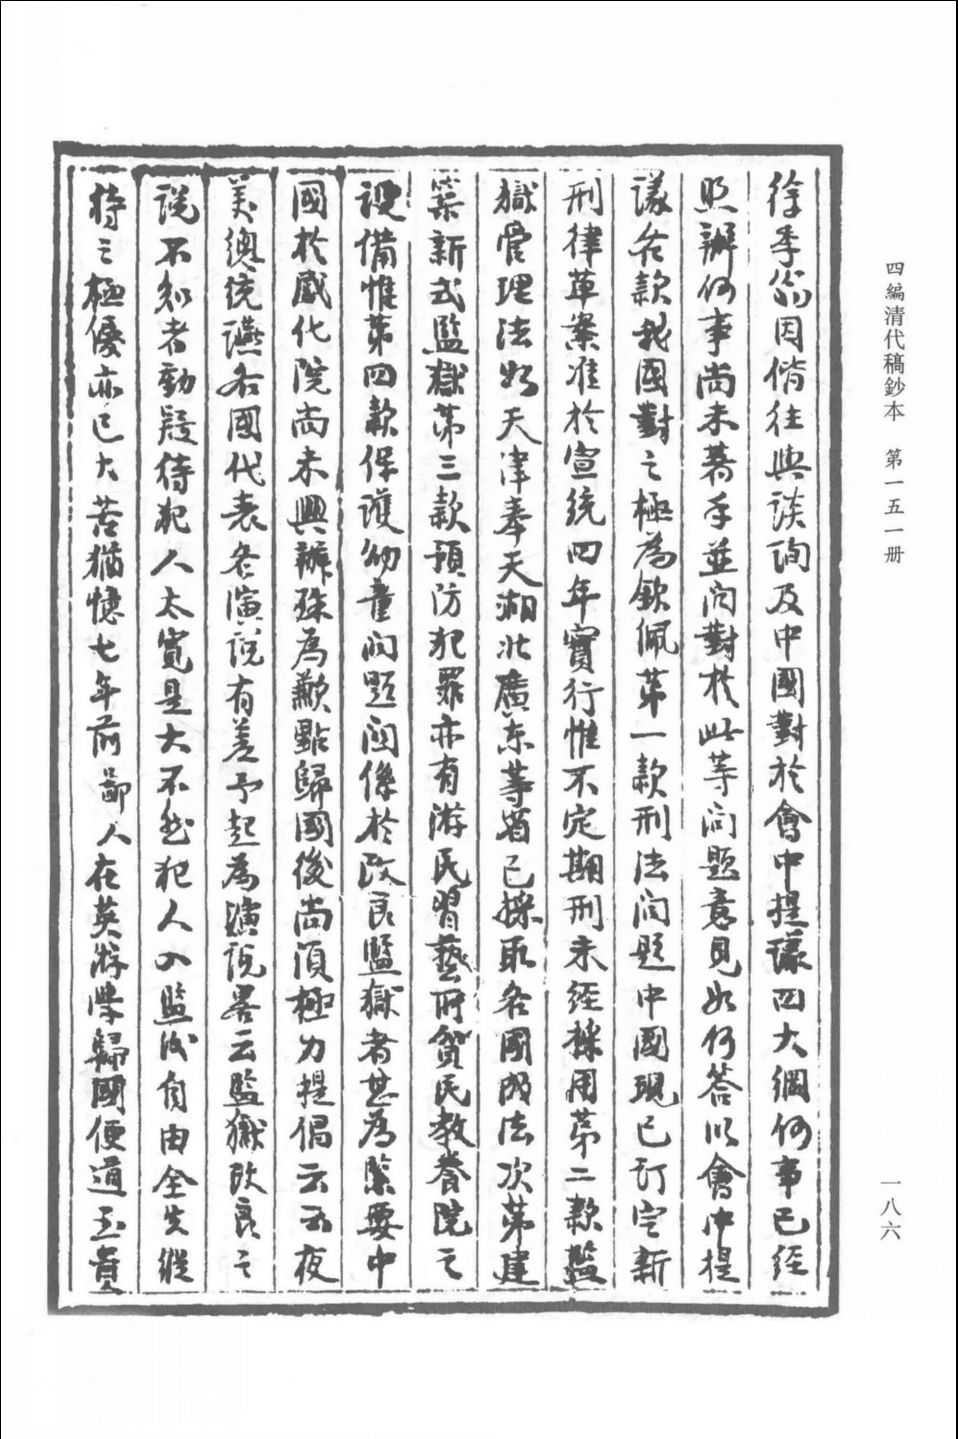 四編清代稿鈔本　第一五一册
一八六
徐季翁因偕往與談詢及中國對於會中提議四大綱何事已經
照辦何事尚未著手並问對於此等问題意見如何答以會中提
議各款我國對之極為欽佩第一款刑法问題中國現已訂定新
刑律草案准於宣統四年實行惟不定期刑未經採用第二款監
獄管理法如天津奉天湖北廣東等省已採取各國成法次第建
築新式監獄第三款預防犯罪亦有游民習藝所貧民教養院之
設備惟第四款保護幼童问題関係於改良監獄者甚為緊要中
國於感化院尚未興辦殊為歉點歸國後尚須極力提倡云云夜
美總統讌各國代表各演說有差予起為演說畧云監獄改良之
說不知者動疑待犯人太寬是大不然犯人入監後自由全失縱
待之極優亦已大苦猶憶七年前鄙人在英游學歸國便道玉賣